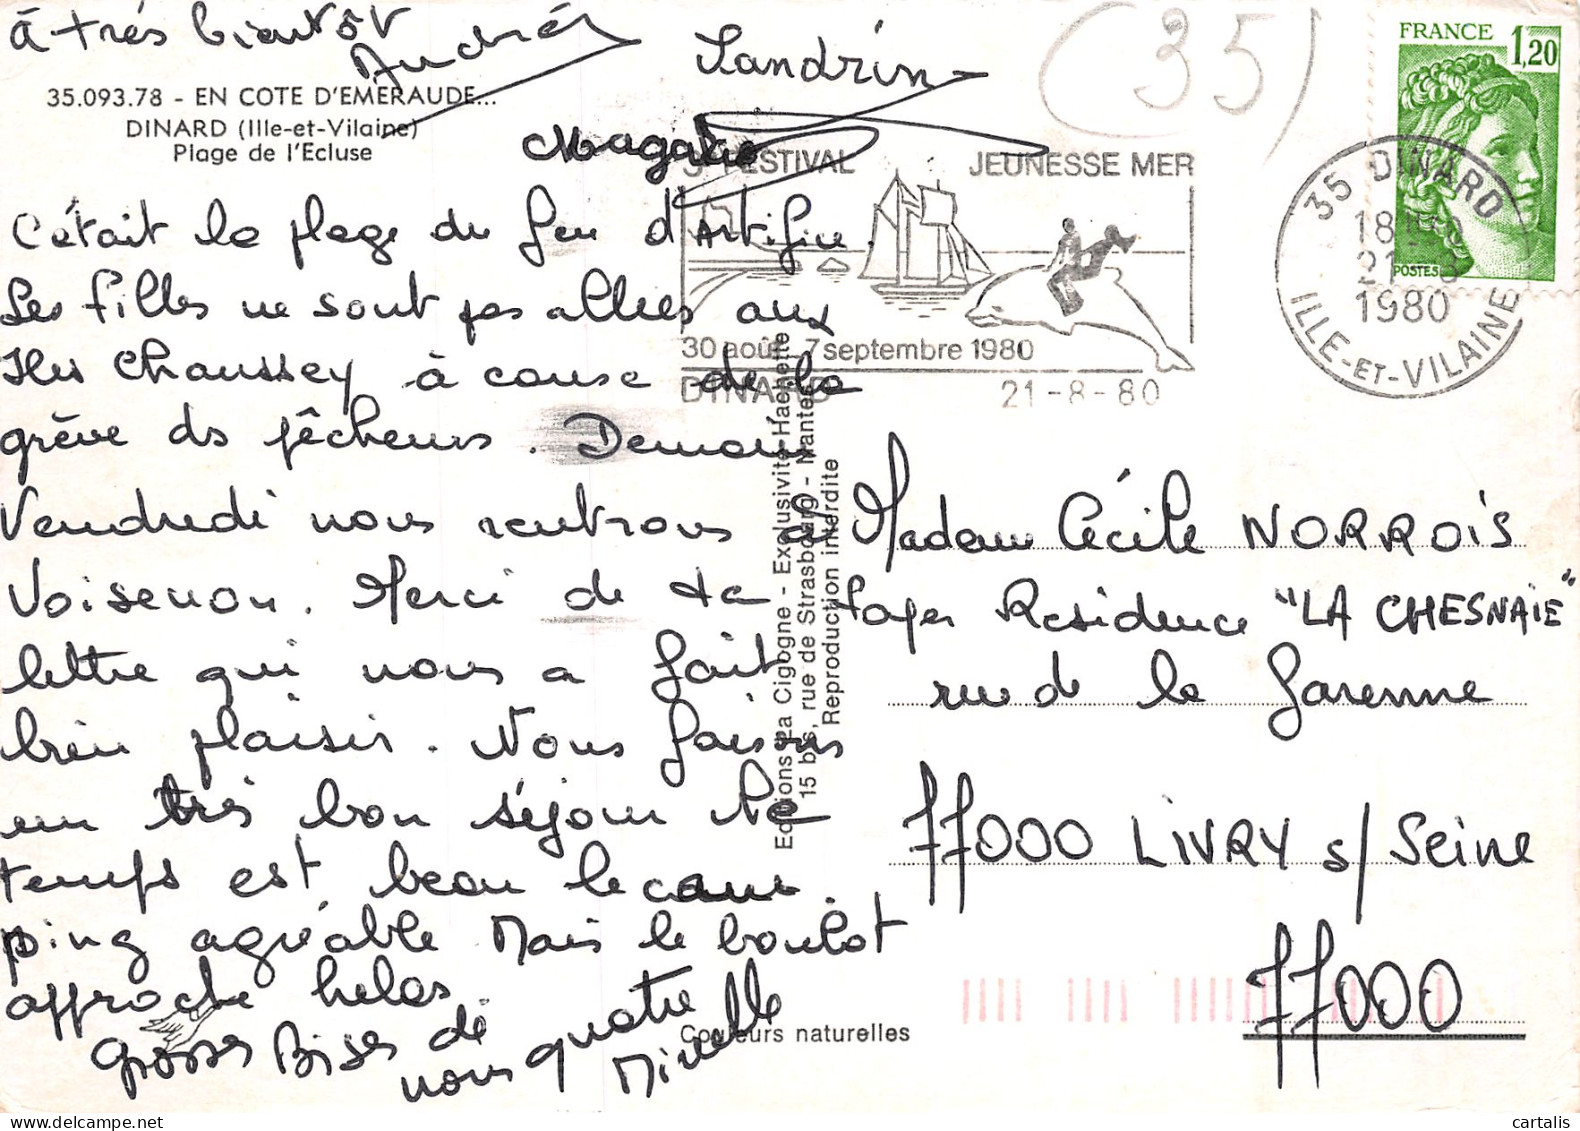 à très bientôt
André
Sandrine
Magalie
(35)
35.093.78 - EN COTE D'EMERAUDE...
DINARD (Ille-et-Vilaine)
Plage de l'Ecluse
FRANCE 1,20
POSTES
35 DINARD
18H
21-8
1980
ILLE-ET-VILAINE
FESTIVAL JEUNESSE MER
30 août 7 septembre 1980
DINARD
21-8-80
C'était la plage du feu d'Artifice.
Les filles ne sont pas allées aux
Iles Chaussey à cause de la
grève ds pêcheurs. Demain
Vendredi nous rentrons à
Voisenon. Merci de ta
lettre qui nous a fait
bien plaisir. Nous faisons
un très bon séjour le
temps est beau le cam
ping agréable Mais le boulot
approche helas
Grosses Bises de
nous quatre
Mireille
Editions La Cigogne - Exclusivité Hachette
15 bis, rue de Strasbourg - Nantes
Reproduction interdite
Couleurs naturelles
Madame Cécile NORROIS
Foyer Residence "LA CHESNAIE"
rue de la Garenne
77000 LIVRY s/ Seine
77000
cartalis